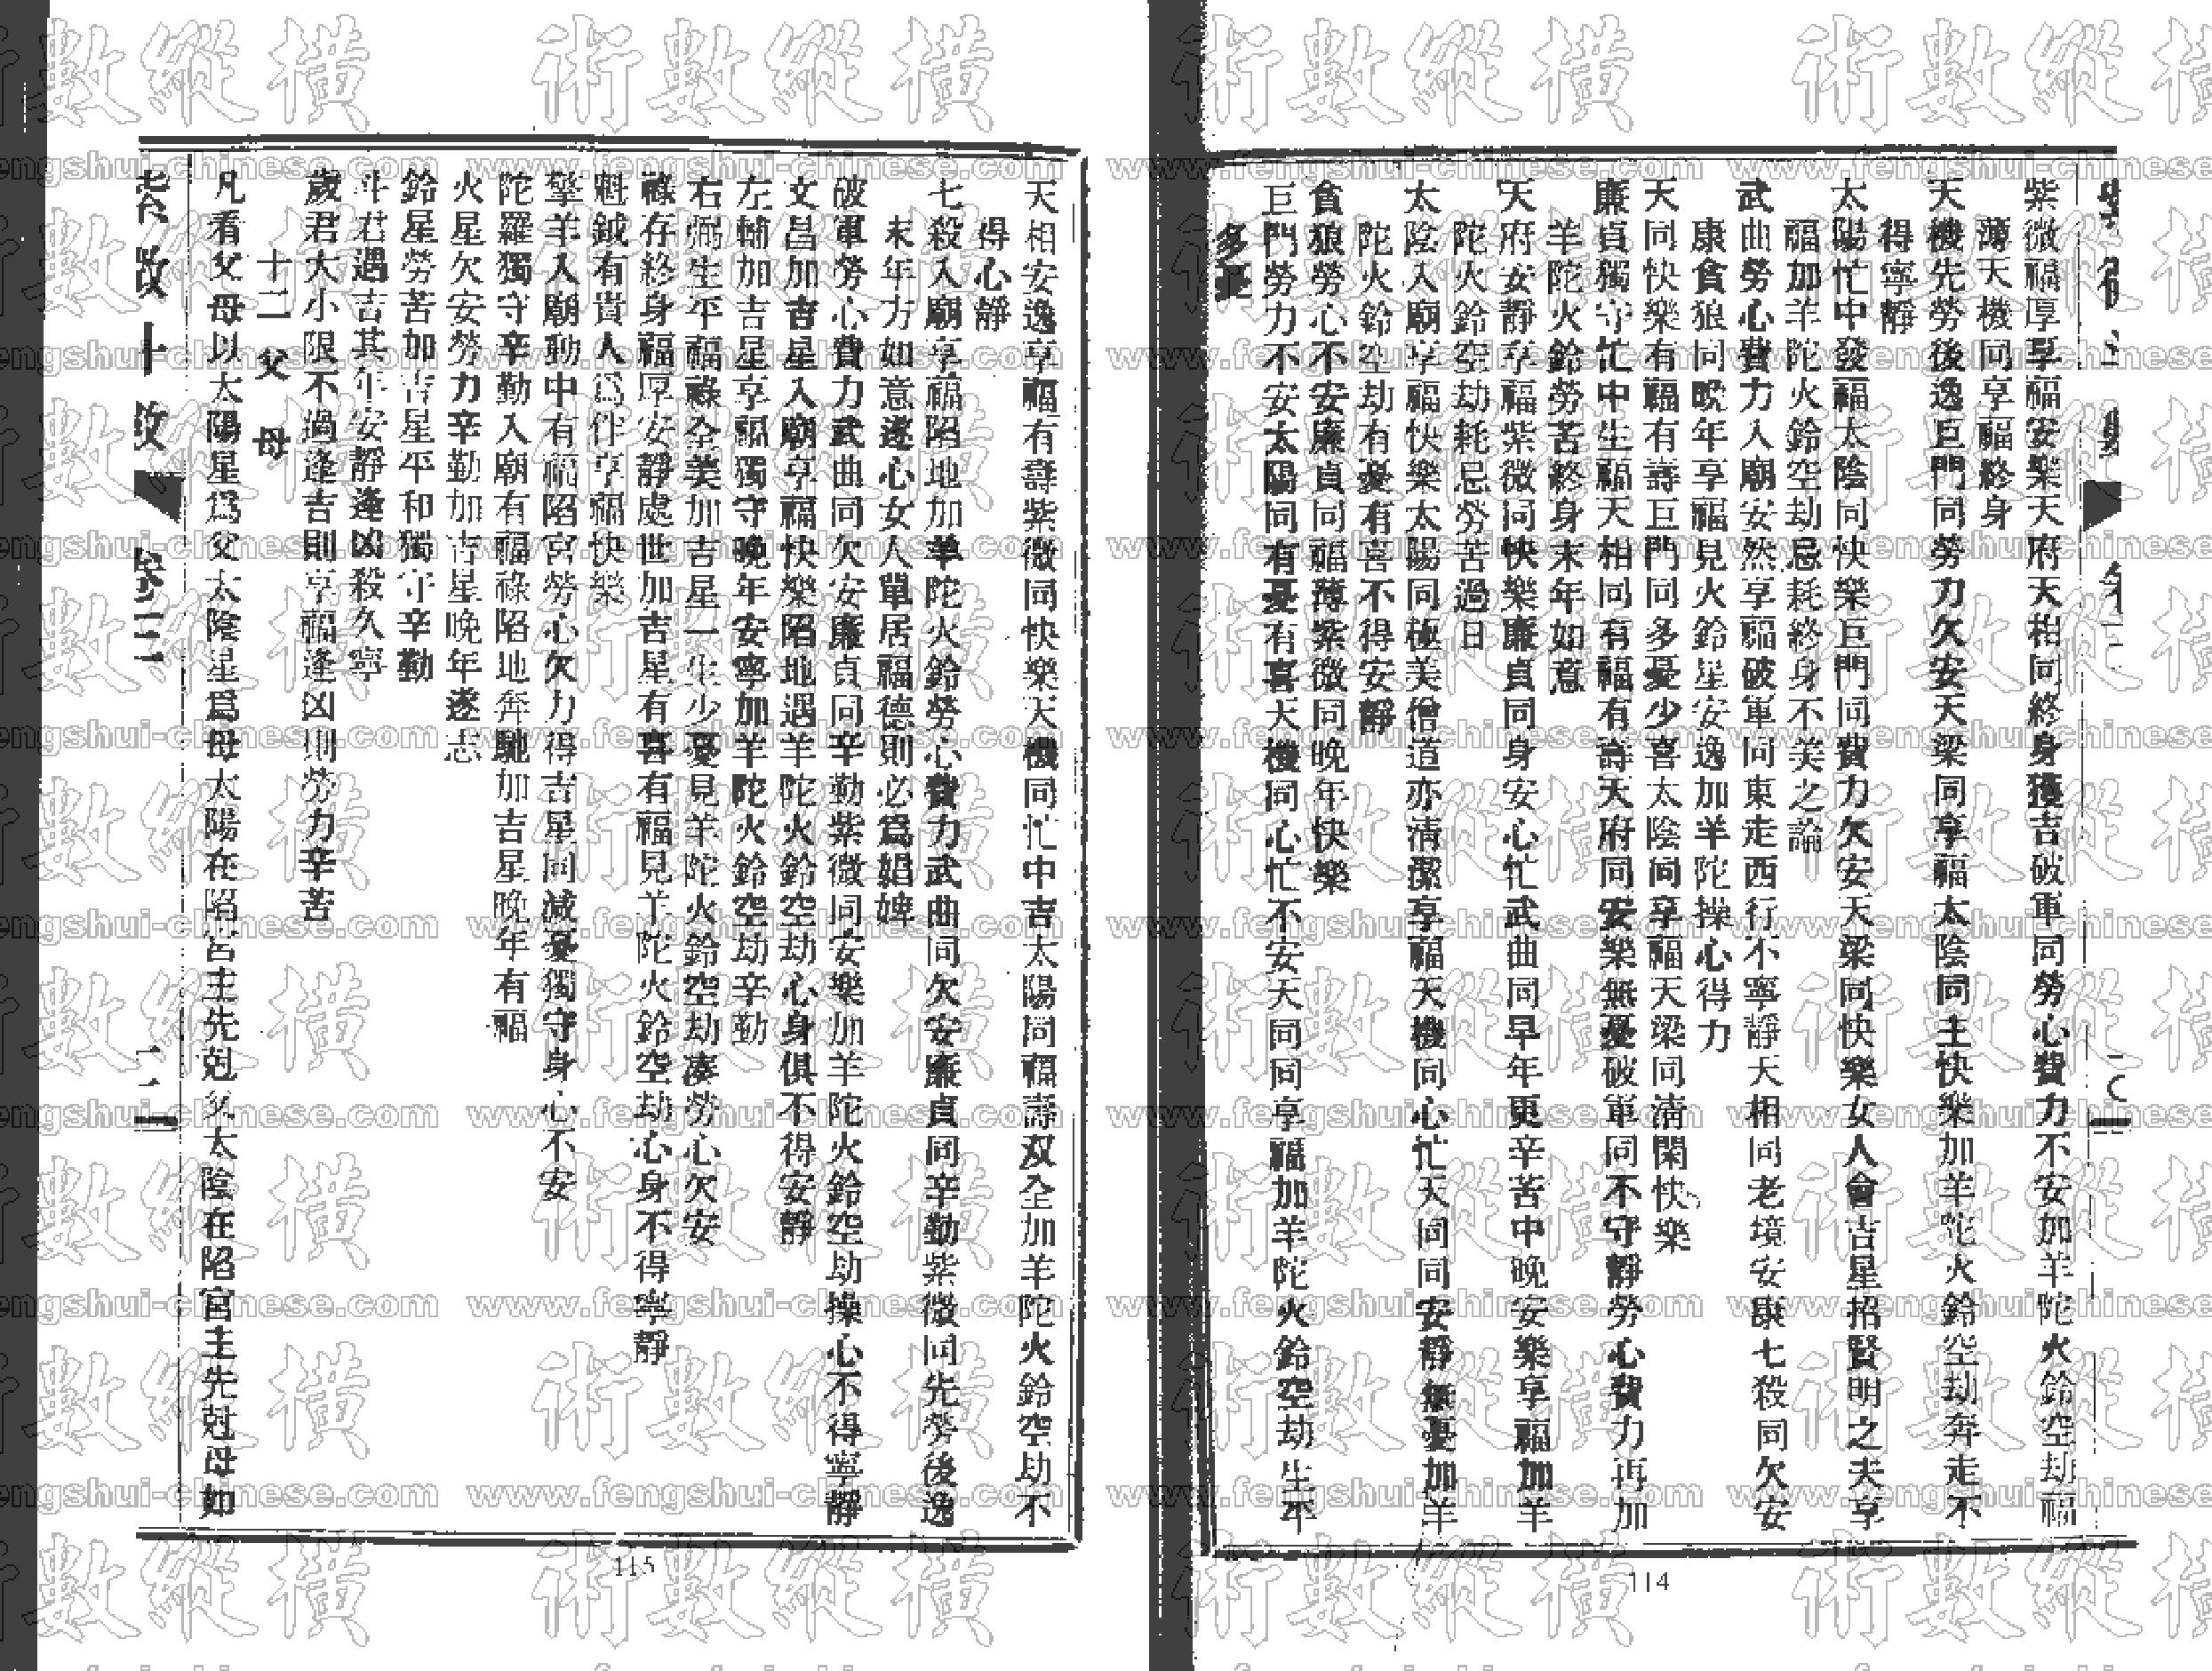 紫微福厚享福安樂天府天相同終身獲吉破軍同勞心費力不安加羊陀火鈴空劫福
薄天機同享福終身
天機先勞後逸巨門同勞力欠安天梁同享福太陰同主快樂加羊陀火鈴空劫奔走不
得寧靜
太陽忙中發福太陰同快樂巨門同費力欠安天梁同快樂女人會吉星招賢明之夫享
福加羊陀火鈴空劫忌耗終身不美之論
武曲勞心費力入廟安然享福破軍同東走西行不寧靜天相同老境安康七殺同欠安
康貪狼同晚年享福見火鈴星安逸加羊陀操心得力
天同快樂有福有壽巨門同多憂少喜太陰同享福天梁同清閑快樂
廉貞獨守忙中生福天相同有福有壽天府同安樂無憂破軍同不守靜勞心費力再加
羊陀火鈴勞苦終身末年如意
天府安靜享福紫微同快樂廉貞同身安心忙武曲同早年更辛苦中晚安樂享福加羊
陀火鈴空劫耗忌勞苦過日
太陰入廟享福快樂太陽同極美僧道亦清潔享福天機同心忙天同同安靜無憂加羊
陀火鈴空劫有憂有喜不得安靜
貪狼勞心不安廉貞同福薄紫微同晚年快樂
巨門勞力不安太陽同有憂有喜天機同心忙不安天同同享福加羊陀火鈴空劫生平
多憂
114
天相安逸享福有壽紫微同快樂天機同忙中吉太陽同福壽双全加羊陀火鈴空劫不
得心靜
七殺入廟享福陷地加羊陀火鈴勞心費力武曲同欠安廉貞同辛勤紫微同先勞後逸
末年方如意遂心女人單居福德則必為娼婢
破軍勞心費力武曲同欠安廉貞同辛勤紫微同安樂加羊陀火鈴空劫操心不得寧靜
文昌加吉星入廟享福快樂陷地遇羊陀火鈴空劫心身俱不得安靜
左輔加吉星享福獨守晚年安寧加羊陀火鈴空劫辛勤
右弼生平福祿全美加吉星一生少憂見羊陀火鈴空劫凑勞心欠安
祿存終身福厚安靜處世加吉星有喜有福見羊陀火鈴空劫心身不得寧靜
魁鉞有貴人為伴享福快樂
擎羊入廟動中有福陷宮勞心欠力得吉星同減憂獨守身心不安
陀羅獨守辛勤入廟有福祿陷地奔馳加吉星晚年有福
火星欠安勞力辛勤加吉星晚年遂志
鈴星勞苦加吉星平和獨守辛勤
斗君遇吉其年安靜逢凶殺久寧
歲君大小限不過逢吉則享福逢凶則勞力辛苦
十二父母
凡看父母以太陽星為父太陰星為母太陽在陷宮主先剋父太陰在陷宮主先剋母如
卷三
115